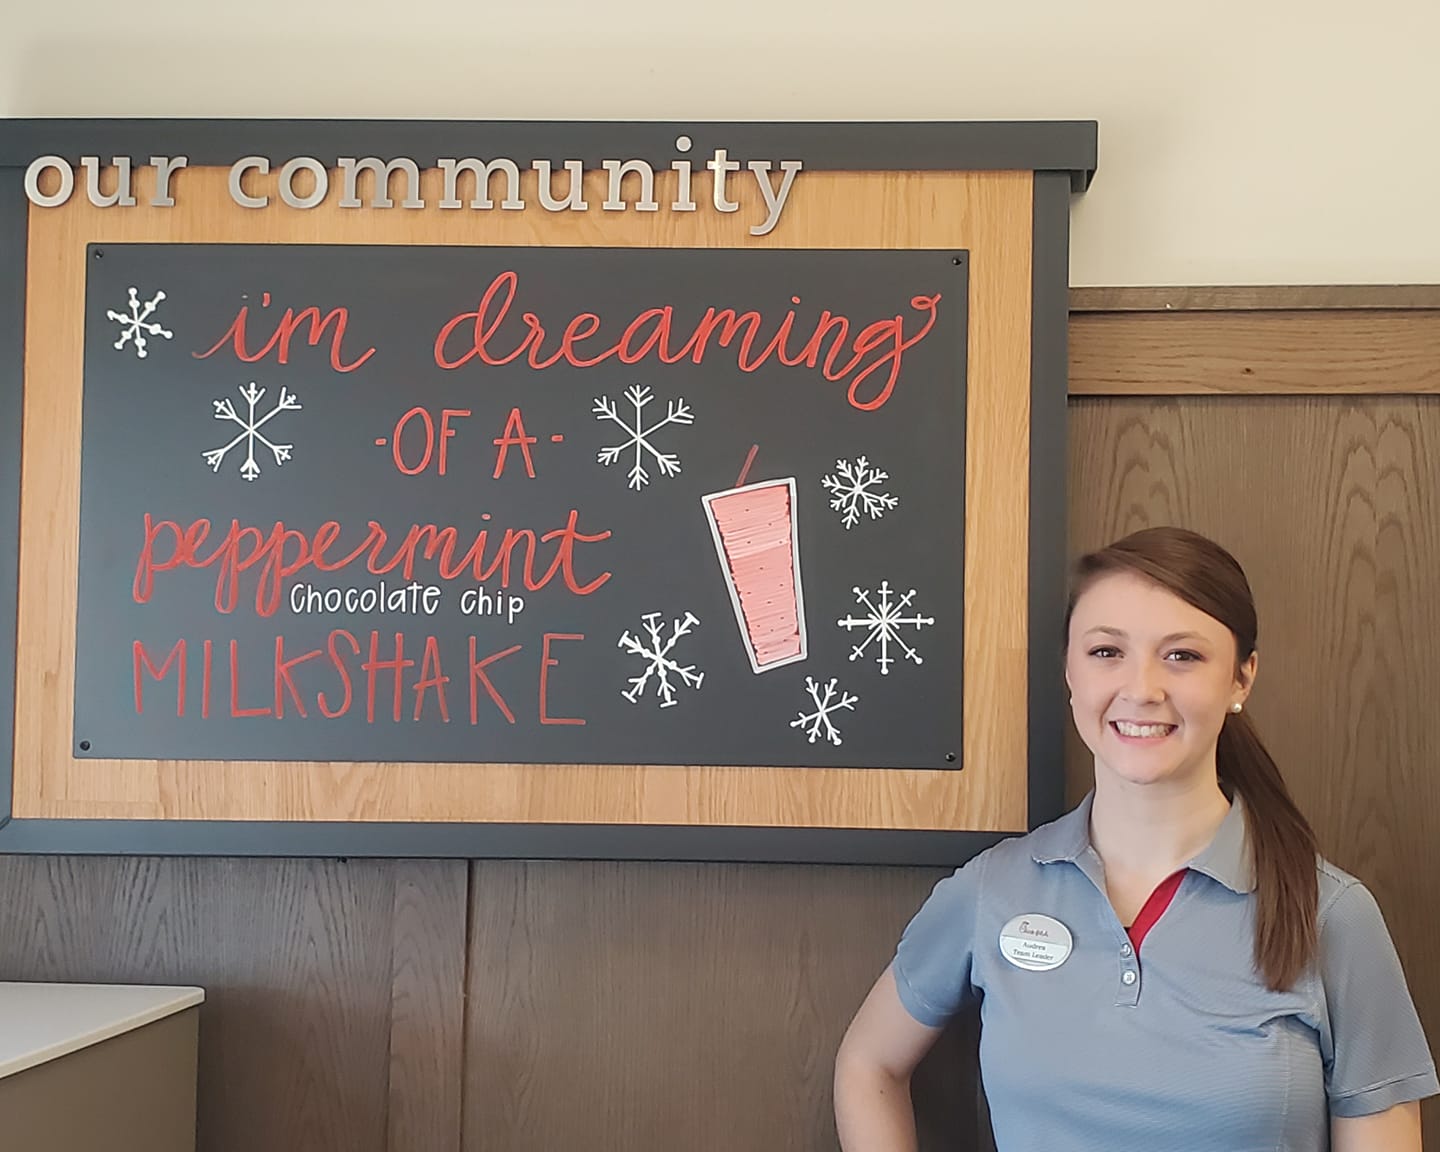 our community
i'm dreaming
-OF A-
peppermint
chocolate chip
MILKSHAKE
Chick-fil-A
Audrea
Team Leader